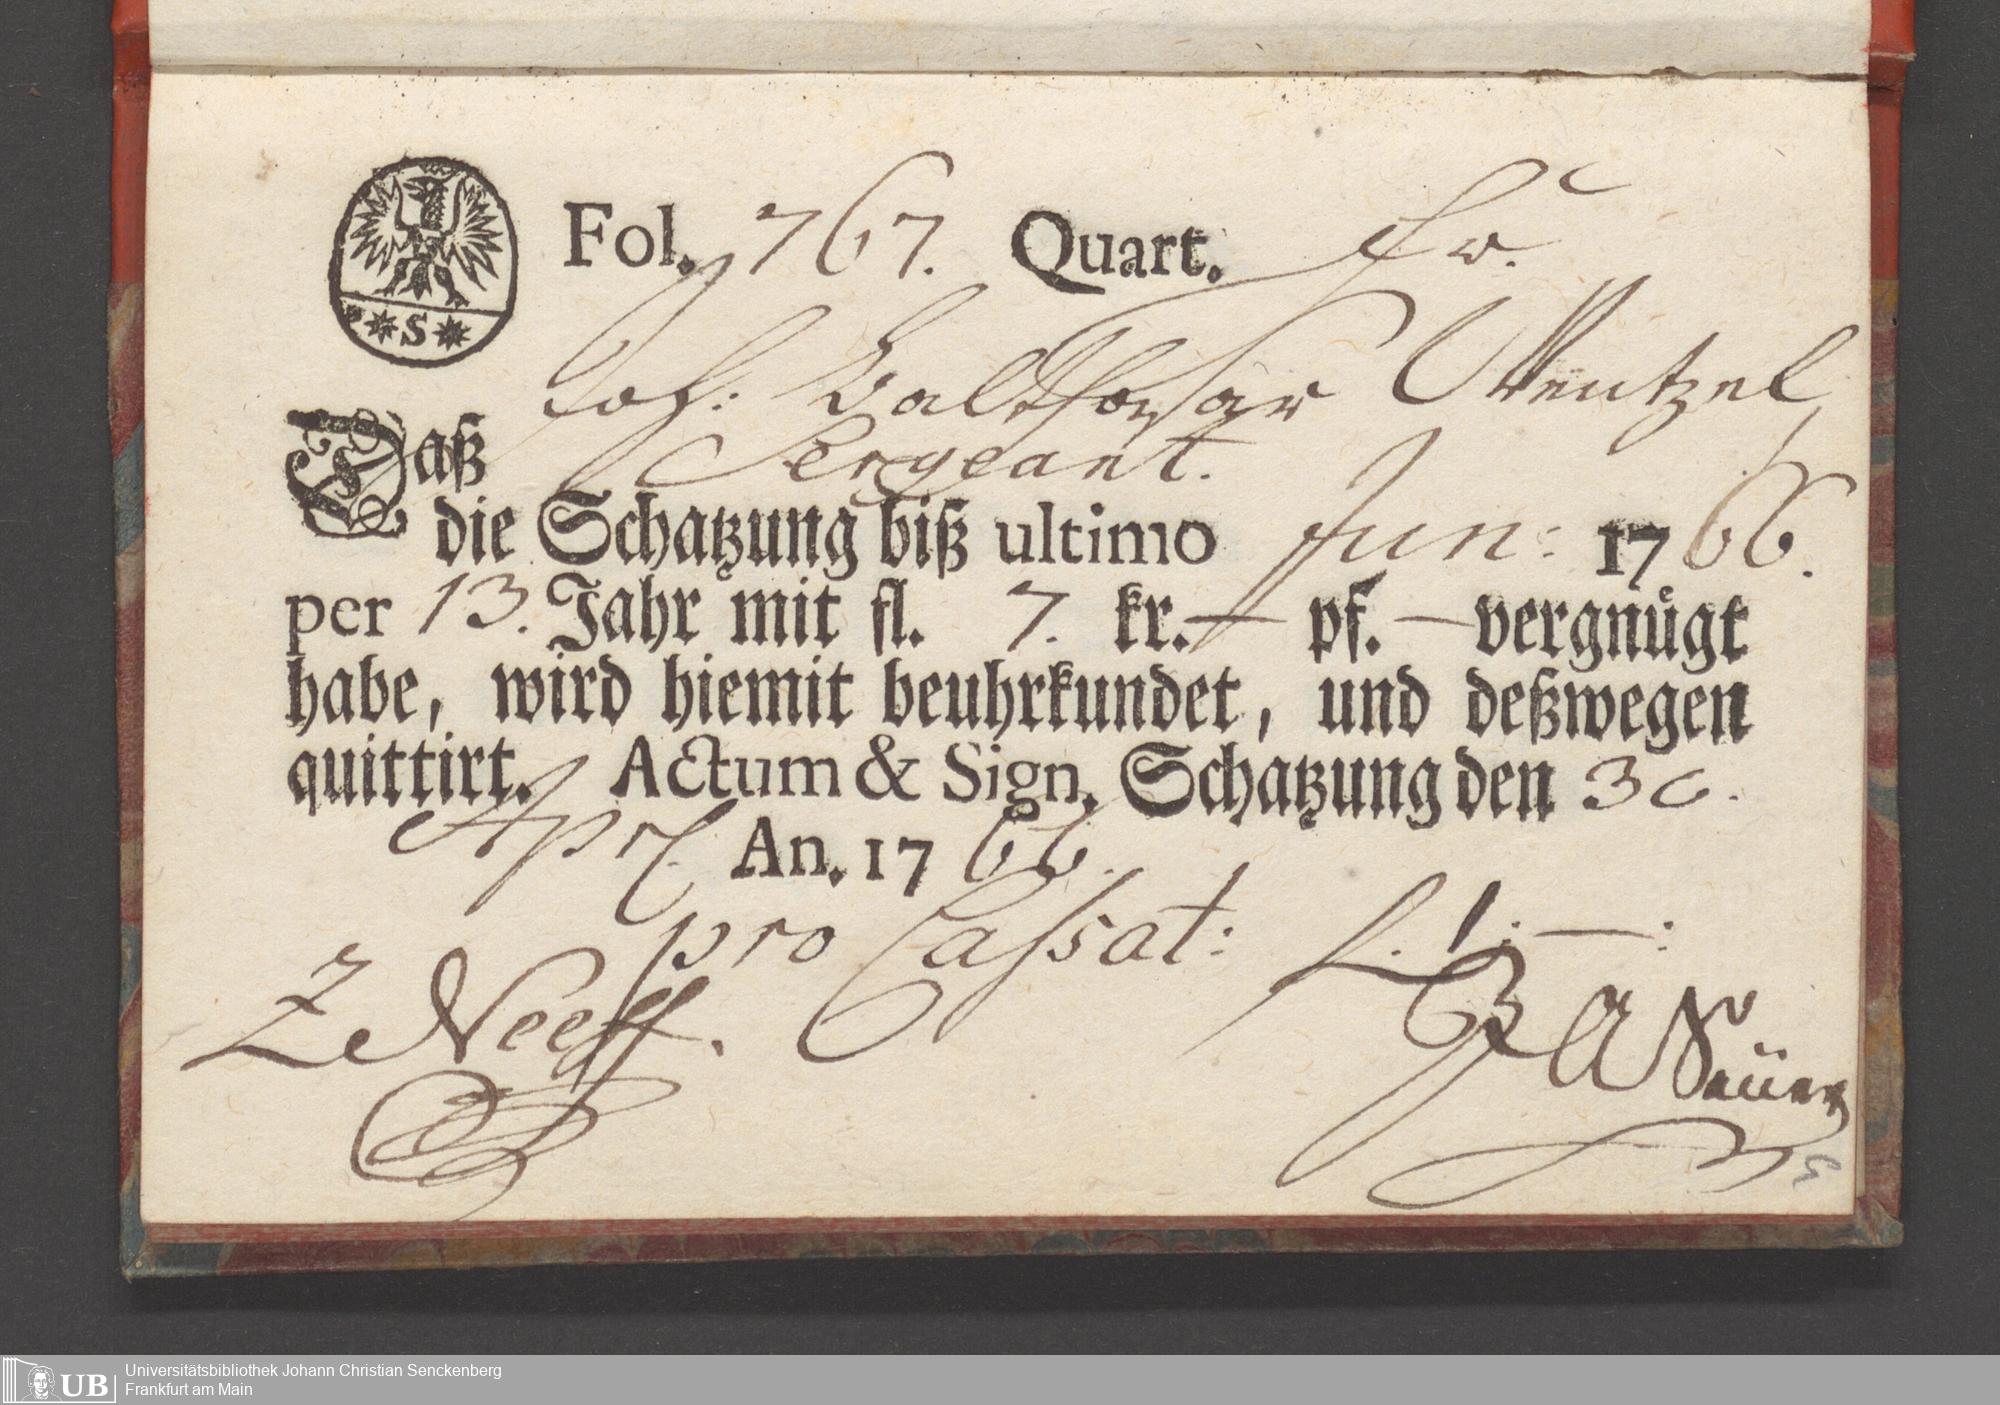 Fol. 767. Quart. Hr.
Joh: Balthasar Wentzel
Daß Sergeant.
die Schatzung biß ultimo Jun: 1766.
per 13. Jahr mit fl. 7. kr. — pf. — vergnügt
habe, wird hiemit beuhrkundet, und deßwegen
quittirt. Actum & Sign. Schatzung den 30.
Apr. An. 1766.
pro Cassat: f. 1. — :
Z Neeff.
Saüer
*S*
UB
Universitätsbibliothek Johann Christian Senckenberg
Frankfurt am Main